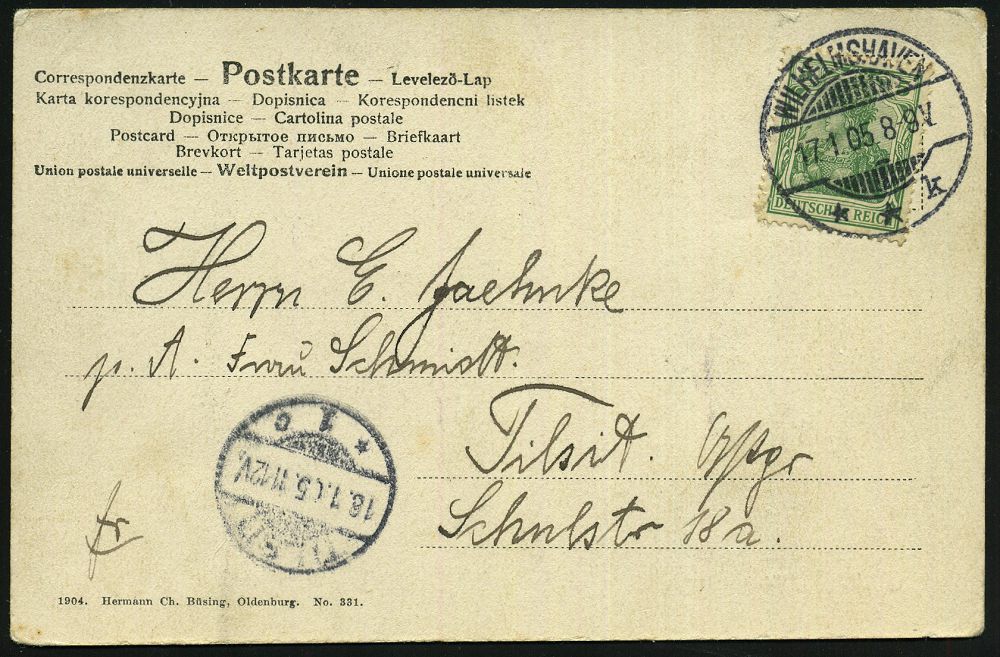 Correspondenzkarte — Postkarte — Levelezö-Lap
Karta korespondencyjna — Dopisnica — Korespondencni listek
Dopisnice — Cartolina postale
Postcard — Открытое письмо — Briefkaart
Brevkort — Tarjetas postale
Union postale universelle — Weltpostverein — Unione postale universale
WILHELMSHAVEN
17.1.05 8-9V
* * k
DEUTSCHES REICH
Herrn E. Jaehnke
p. A. Frau Schmidt.
Tilsit. Ostpr
Schulstr 18a.
fr
* 1 c
18.1.05. 11-12V.
TILSIT
1904. Hermann Ch. Büsing, Oldenburg. No. 331.